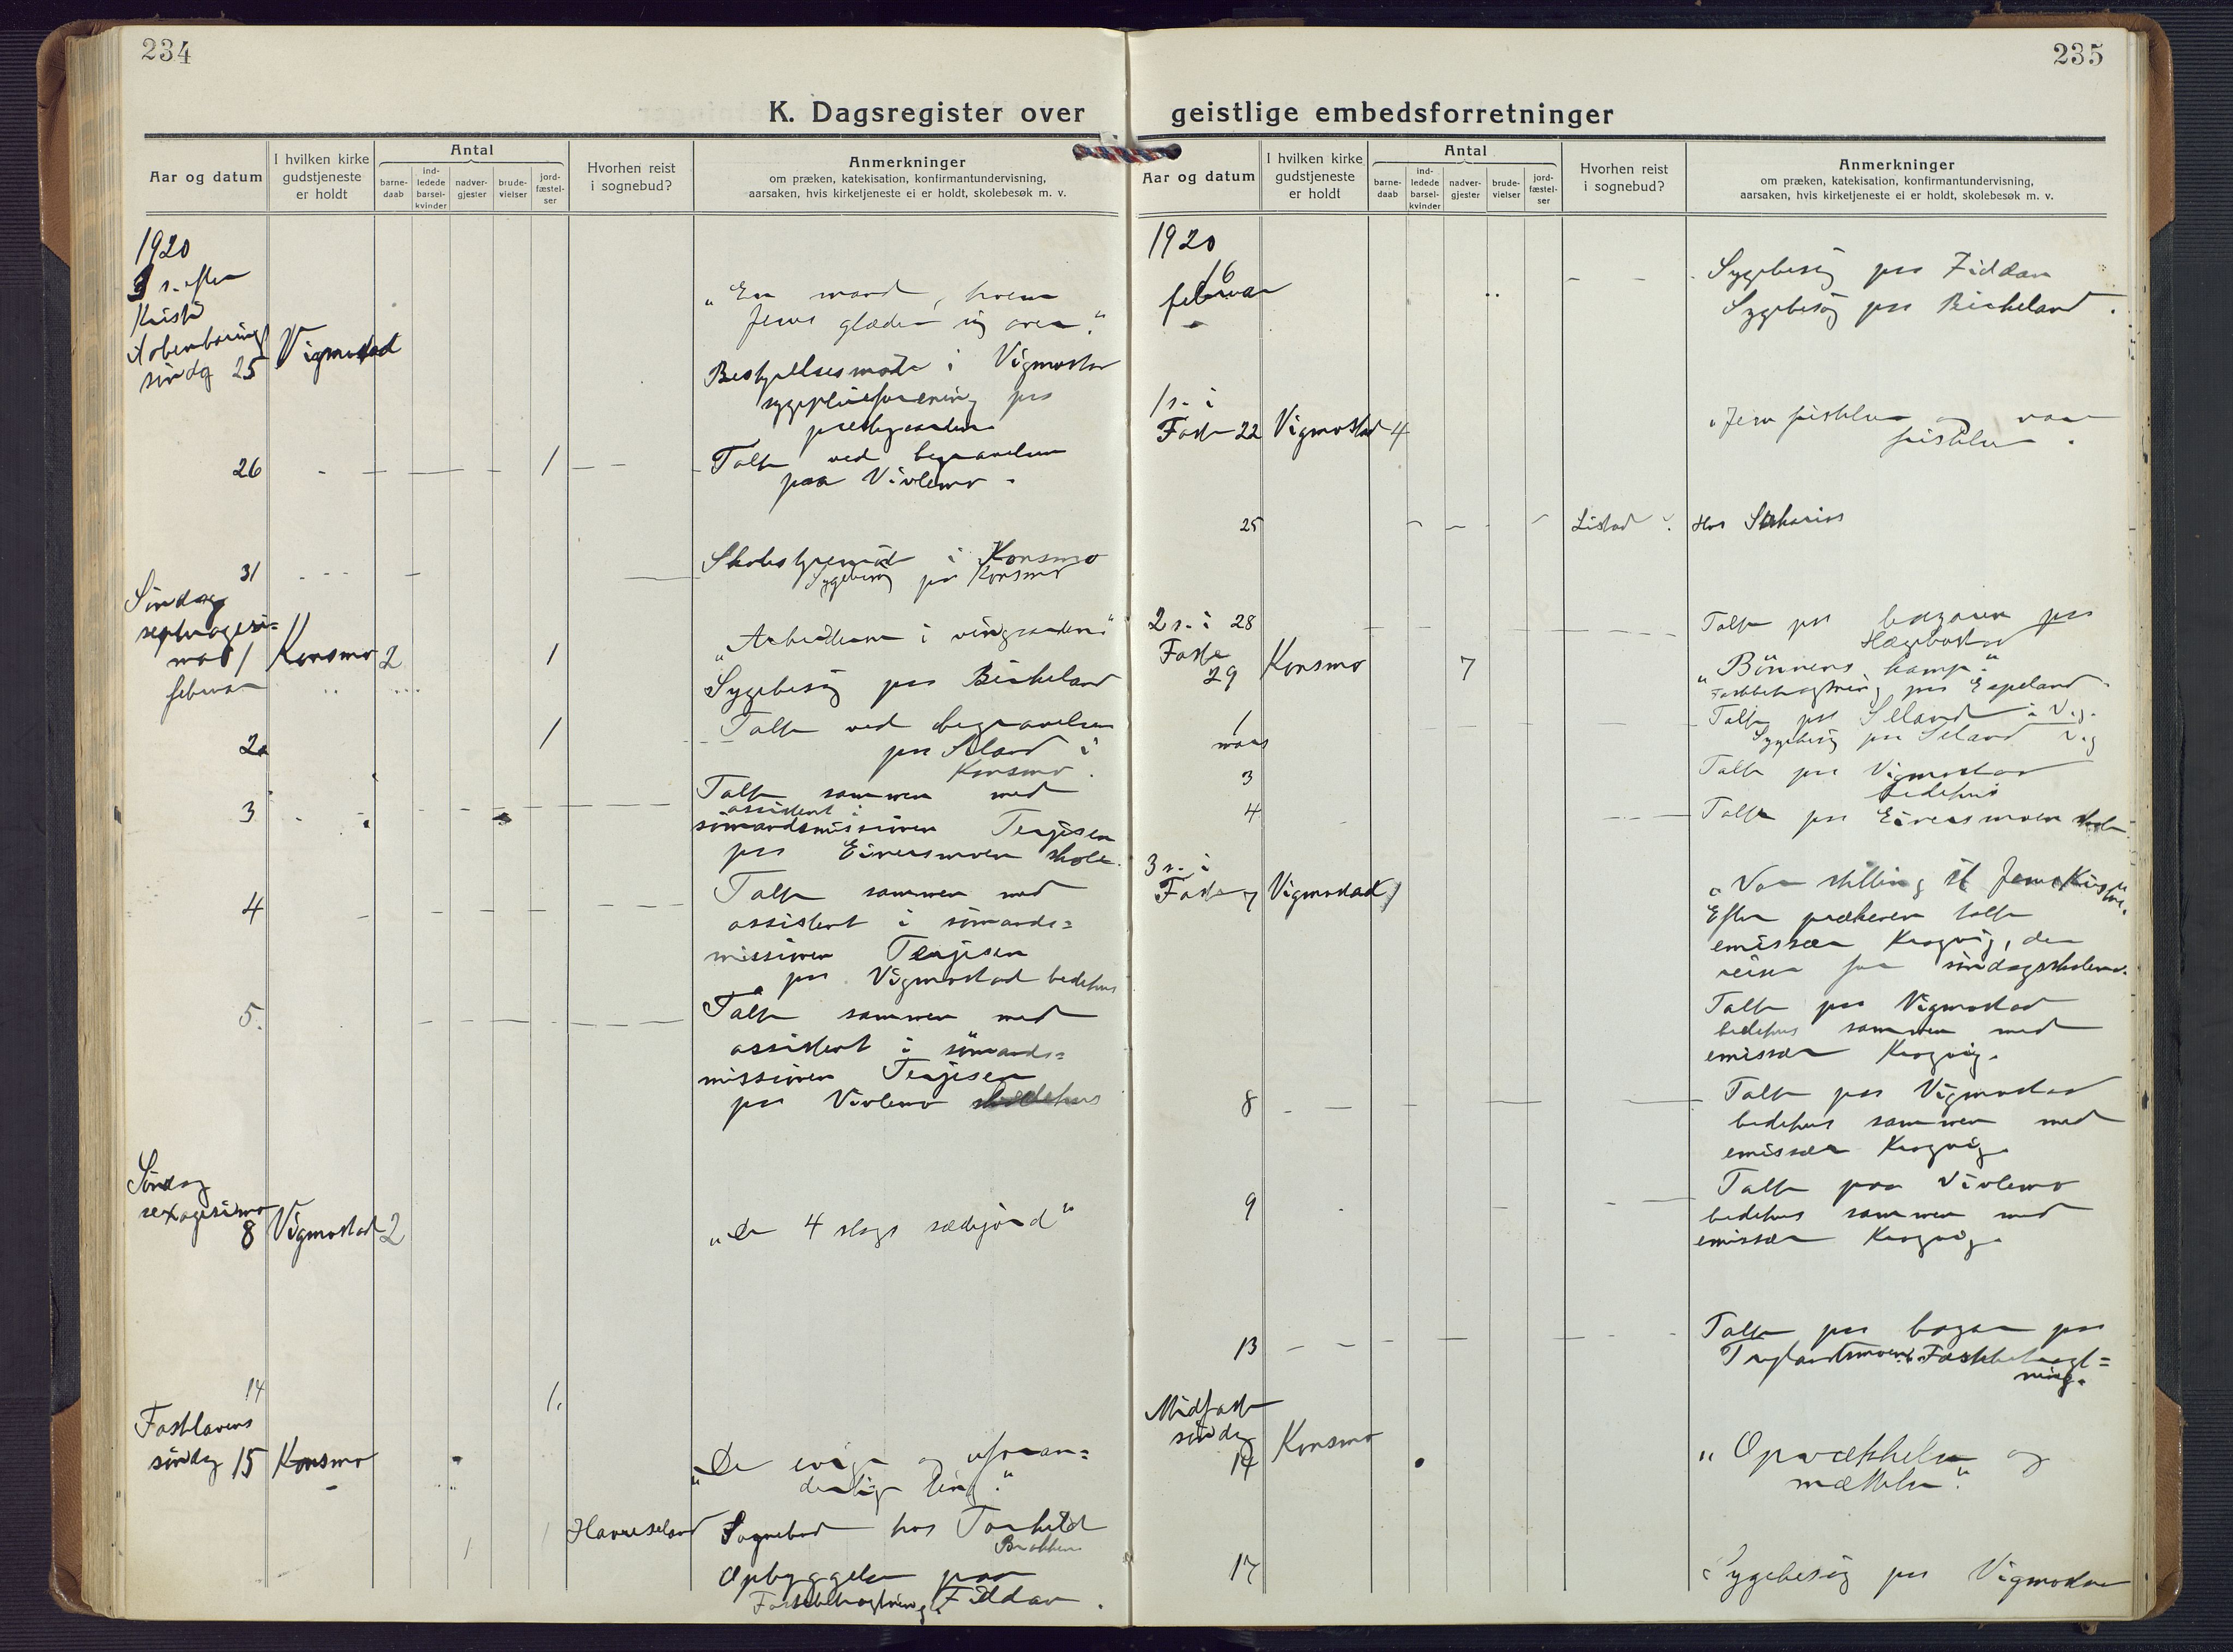 234
K. Dagsregister over
Aar og datum
I hvilken kirke
gudstjeneste
er holdt
Antal
barne-
daab
ind-
ledede
barsel-
kvinder
nadver-
gjester
brude-
vielser
jord-
fæstel-
ser
Hvorhen reist
i sognebud?
Anmerkninger
om præken, katekisation, konfirmantundervisning,
aarsaken, hvis kirketjeneste ei er holdt, skolebesøk m. v.
1920
3 s. efter
Kristi
aabenbarings
søndg 25 Vigmostad
"En mand, hvem
Jesus glæder sig over."
Bestyrelsesmøde i Vigmostad
sygepleieforening paa
prestegaarden
26 1 Talte ved begravelsen
paa Viblemo.
31 Skolestyremøde i Konsmo
Sygebesøg paa Konsmo
Søndag
septuagesi=
ma 1 Konsmo 2 1 "Arbeiderne i vingaarden"
februar
Sygebesøg paa Birkeland
2 1 Talte ved begravelsen
paa Seland i
Konsmo.
3 Talte sammen med
assistent i
sømandsmissionen Terjesen
paa Eiversmoen skole.
4 Talte sammen med
assistent i sømands=
missionen Terjesen
paa Vigmostad bedehus
5. Talte sammen med
assistent i sømands=
missionen Terjesen
paa Viblemo bedehus
Søndag
sexagesima
8 Vigmostad 2 "De 4 slags sædejord"
14 1.
Fastelavens
søndg 15 Konsmo
"De evige og uforan=
derlige ting."
1 Haaverseland Sognebud hos Torhild
Brokken
Opbyggelse paa
Fastebetragtning Fiddan.
235
geistlige embedsforretninger
Aar og datum
I hvilken kirke
gudstjeneste
er holdt
Antal
barne-
daab
ind-
ledede
barsel-
kvinder
nadver-
gjester
brude-
vielser
jord-
fæstel-
ser
Hvorhen reist
i sognebud?
Anmerkninger
om præken, katekisation, konfirmantundervisning,
aarsaken, hvis kirketjeneste ei er holdt, skolebesøk m. v.
1920
16
februar
Sygebesøg paa Fiddan
Sygebesøg paa Birkeland.
1 s. i
Faste 22 Vigmostad 4
"Jesu fristelse og vaar
fristelse".
25 Listad Hos
2 s. i 28 Talte paa bazaren paa
Hægebostad
Faste
29 Konsmo 7 "Bønnens kamp."
Fastebetragtning paa Espeland.
1
mars
Talte paa Seland i Vig.
Sygebesøg paa Seland Vig
3 Talte paa Vigmostad
bedehus
4 Talte paa Eiversmoen skole
3 s. i
Faste 7 Vigmostad 1
"Vor stilling til Jesus Kristus".
Efter prækenen talte
emissær Krogvig, der
reiser for søndagsskolerne.
Talte paa Vigmostad
bedehus sammen med
emissær Krogvig.
8 Talte paa Vigmostad
bedehus sammen med
emissær Krogvig.
9 Talte paa Viblemo
bedehus sammen med
emissær Krogvig.
13 Talte paa bazar paa
Fastebetragt=
ning.
Midfaste
søndg
14 Konsmo
"Opvækkelse og
mættelse".
17 Sygebesøg paa Vigmostad